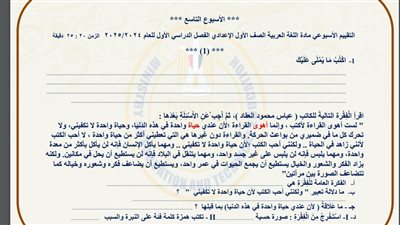 *** الأسبوع التاسع ***
التقييم الأسبوعي مادة اللغة العربية الصف الأول الإعدادي الفصل الدراسي الأول للعام ٢٠٢٥/٢٠٢٤ الزمن ٢٠ : ٢٥ دقيقة
*** (1) ***
1. اكْتُبْ مَا يُمْلَى عَلَيْكَ
اقرأ الْفَقْرةَ التاليةَ للكاتب ( عباس محمود العقاد )، ثمَّ أجب عن الأسئلةِ بَعْدَها :
" لست أهوى القراءة لأكتب ، وإنما أهوى القراءة لأن عندي حياة واحدة في هذه الدنيا، وحياة واحدة لا تكفيني، ولا
تحرك كل ما في ضميري من بواعث الحركة، والقراءة دون غيرها هي التي تعطيني أكثر من حياة واحدة ، لا أحب الكتب
لأنني زاهد في الحياة .. ولكنني أحب الكتب لأن حياة واحدة لا تكفيني .. ومهما يأكل الإنسان فإنه لن يأكل بأكثر من معدة
واحدة، ومهما يلبس فإنه لن يلبس على غير جسد واحد، ومهما ينتقل في البلاد فإنه لن يستطيع أن يحل في مكانين. ولكنه
بزاد الفكر والشعور والخيال يستطيع أن يجمع الحيوات في عمر واحد، ويستطيع أن يضاعف فكره وشعوره وخياله كما
تتضاعف الصورة بين مرآتين"
أ - الفكرة العامة لِلْفَقْرة هي
ب- ما دلالة تعبير " ولكنني أحب الكتب لأن حياة واحدة لا تكفيني " ؟
ج - ما عَلاقَةُ ( لأن عندي حياة واحدة في هذه الدنيا) بما قبلها ؟
د - I - اسْتَخْرِجْ مِنَ الْفَقْرة : صورة حسية II - تكتب همزة كلمة فئة على النبرة والسبب